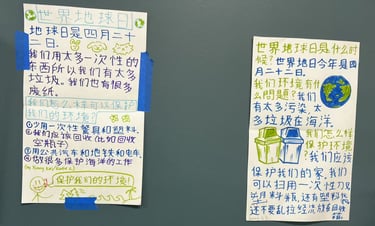 世界地球日
地球日是四月二十
二日.
我们用太多一次性的
东西所以我们有太多
垃圾。我们也有很多
废纸。
我们怎么样可以保护
我们的环境?
①少用一次性餐具和塑料.
②我们应该回收(比如回收
空瓶子)
③用公共汽车和地铁和电车.
④做很多保护海洋的工作
保护我们的环境!
世界地球日是什么时
候?世界地球日今年是四
月二十二日.
我们环境有什
么问题?我们
有太多污染,太
多垃圾在海洋.
我们怎么样
保护环境?
我们应该
保护我们的家,我们
可以
用一次性刀叉
还有塑料
还不要乱